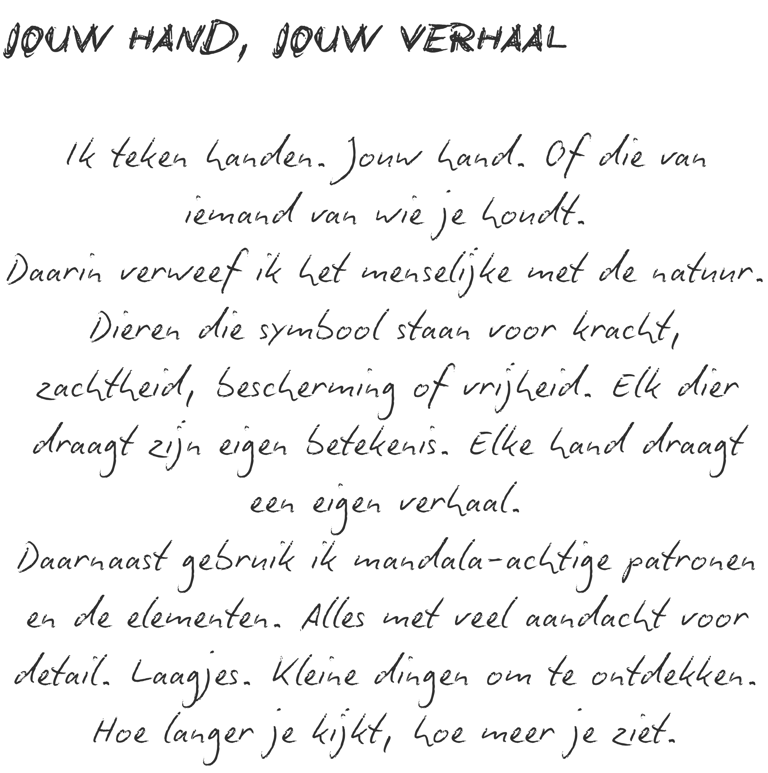 JOUW HAND, JOUW VERHAAL
Ik teken handen. Jouw hand. Of die van
iemand van wie je houdt.
Daarin verweef ik het menselijke met de natuur.
Dieren die symbool staan voor kracht,
zachtheid, bescherming of vrijheid. Elk dier
draagt zijn eigen betekenis. Elke hand draagt
een eigen verhaal.
Daarnaast gebruik ik mandala-achtige patronen
en de elementen. Alles met veel aandacht voor
detail. Laagjes. Kleine dingen om te ontdekken.
Hoe langer je kijkt, hoe meer je ziet.